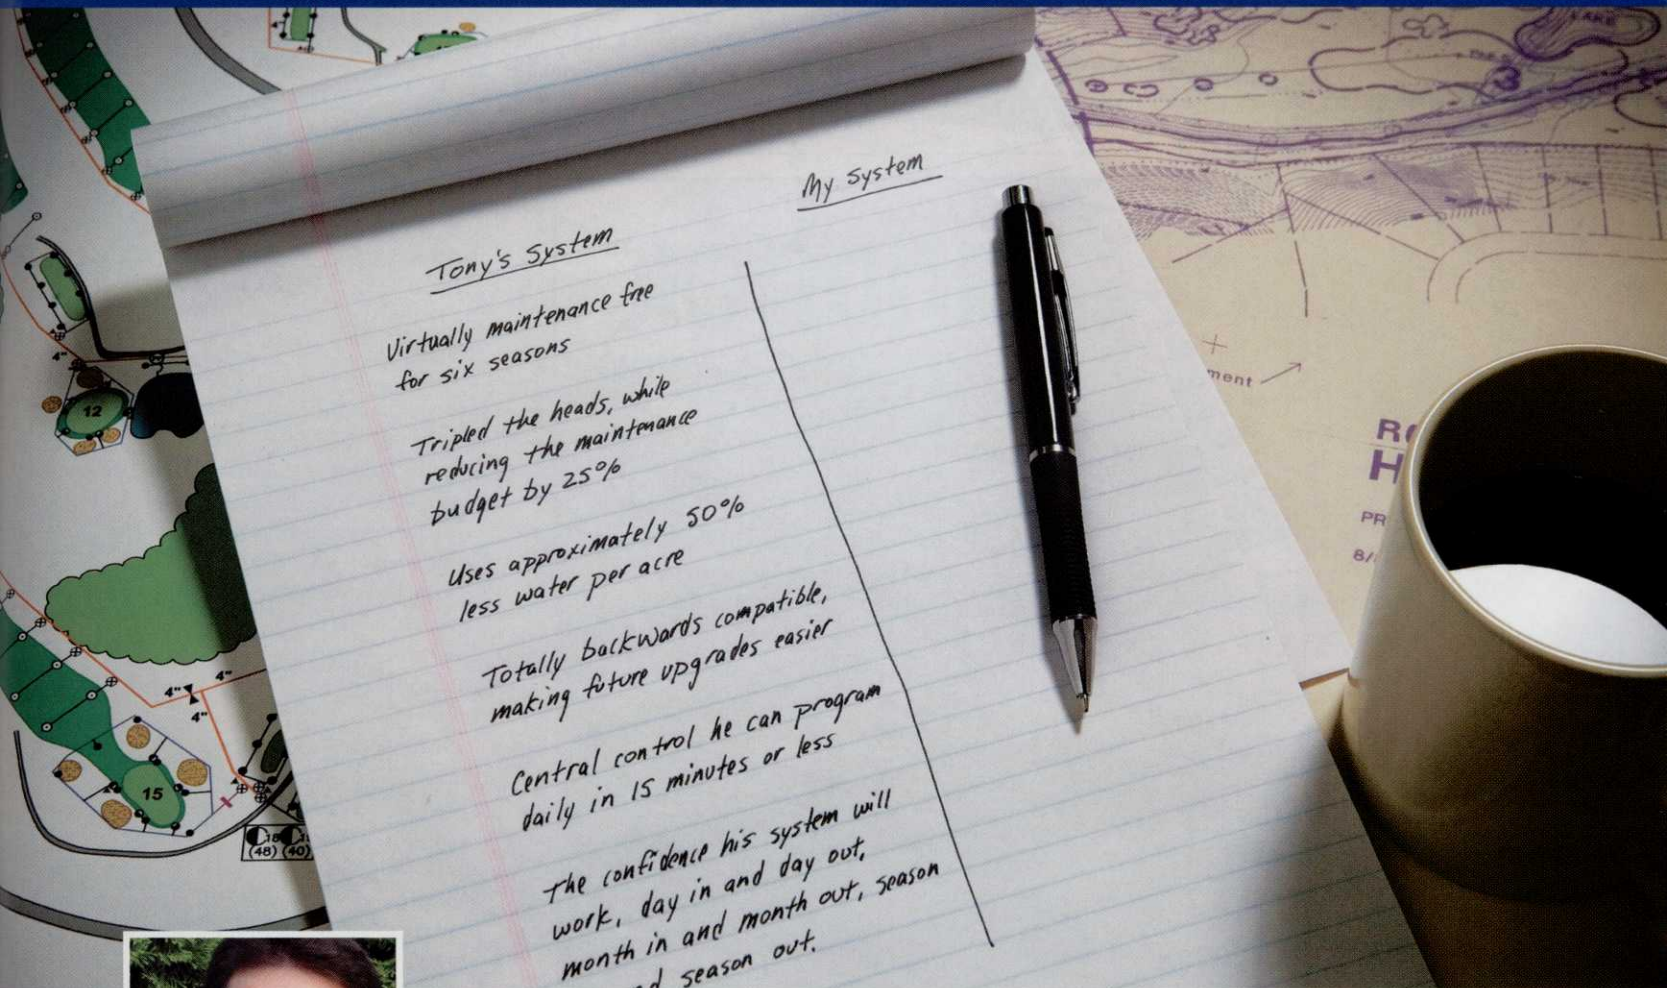 My System
Tony's System
Virtually maintenance free
for six seasons
Tripled the heads, while
reducing the maintenance
budget by 25%
Uses approximately 50%
less water per acre
Totally backwards compatible,
making future upgrades easier
Central control he can program
daily in 15 minutes or less
The confidence his system will
work, day in and day out,
month in and month out, season
season out.
12
4"
4"
4"
4"
15
(48) (40)
LAKE
3
ment
PR
8/